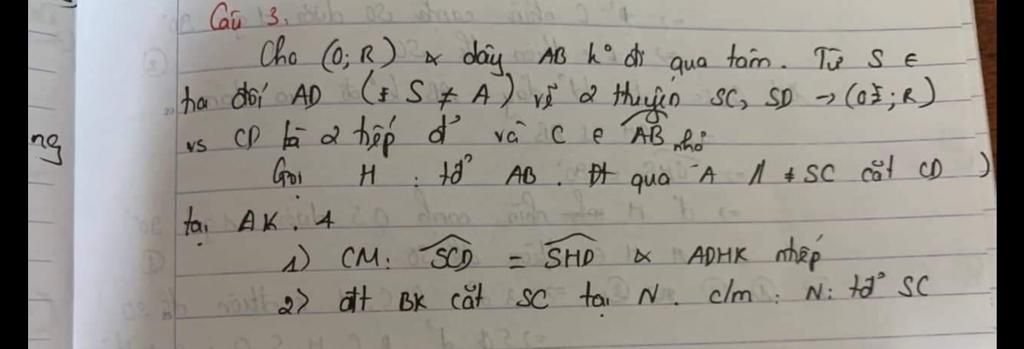 Câu 3.
Cho (O; R) & dây AB kº đi qua tâm. Từ S ∈
ng tia đối AD ( S ≠ A ) vẽ 2 thuyến SC, SD → (O ; R)
vs CD là 2 tiếp đ' và C ∈ AB nhỏ
Gọi H : tđ' AB. Đt qua A // SC cắt CD
tại AK. 4
1) CM: SCD = SHD & ADHK nhếp
2) đt BK cắt SC tại N. c/m : N: tđ' SC